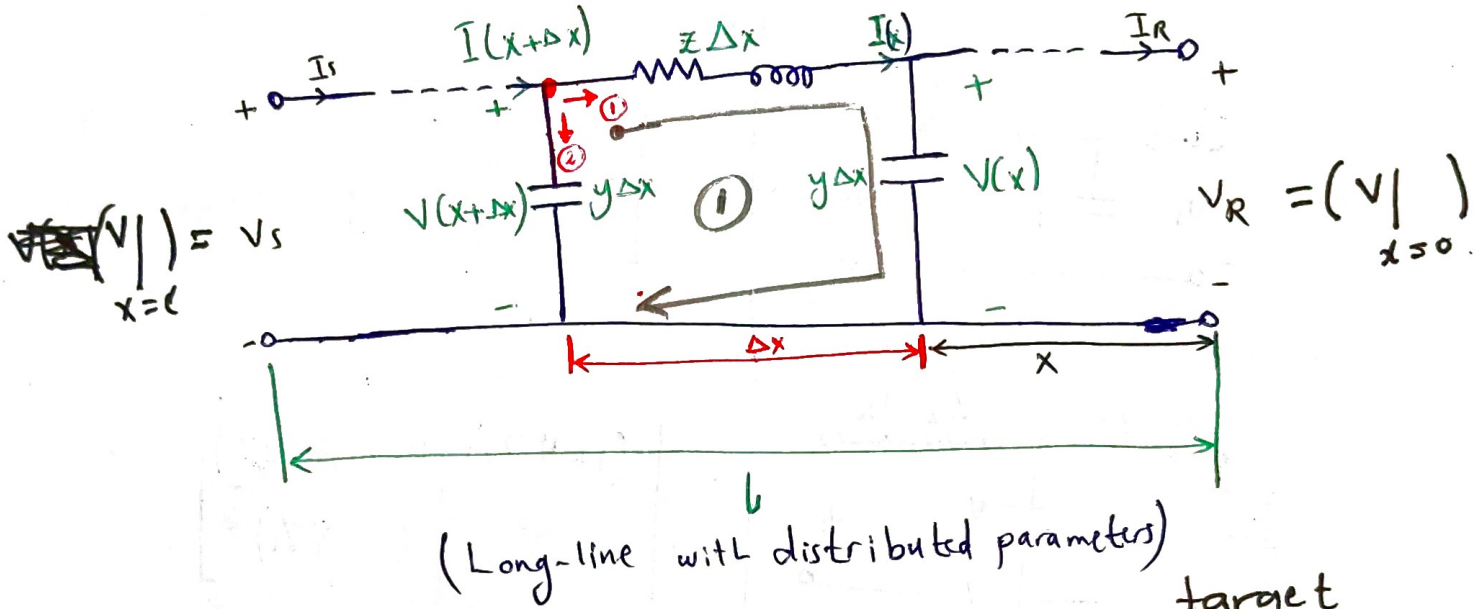 I(x+Δx) zΔx I(x) IR
Is
+ + + +
①
②
V(x+Δx) yΔx ① yΔx V(x)
(V| ) = Vs
x=l
VR = (V| )
x=0
- - - -
Δx x
l
(Long-line with distributed parameters)
target